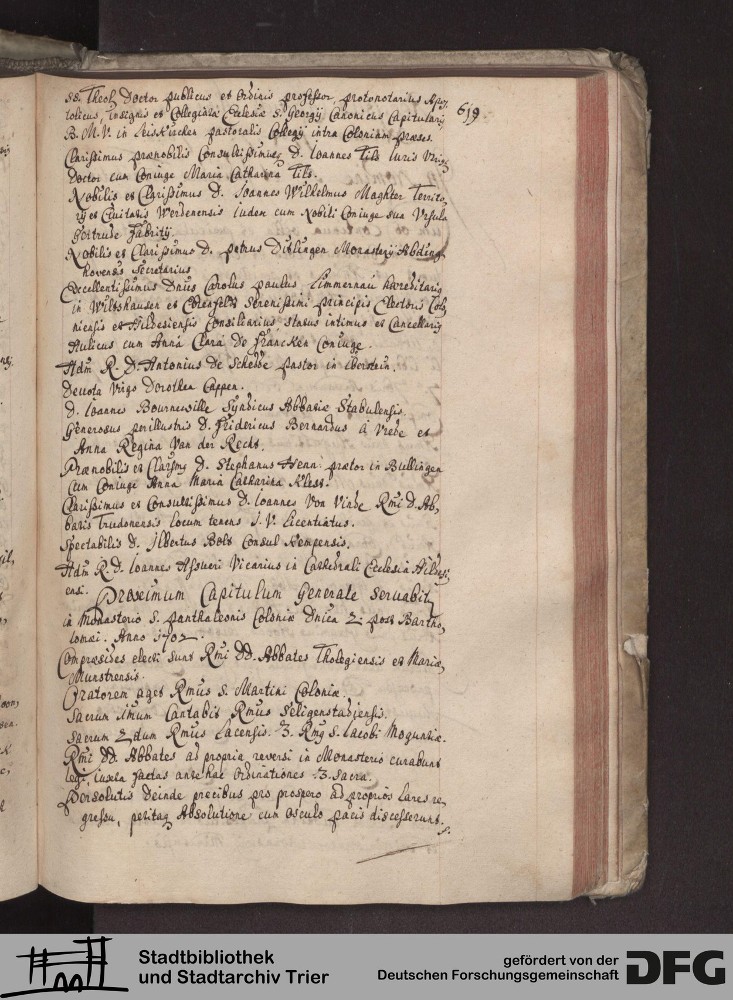 619
SS. Theol. Doctor publicus et Ordinis professor, protonotarius Apos,
tolicus, insignis et Collegiatæ Ecclesiæ S. Georgij Canonicus Capitularis
B. M. V. in pastoralis Collegij intra Coloniam præses.
Clarissimus prænobilis Consultissimus D. Ioannes Tils Iuris Utriq
Doctor cum Coniuge Maria Catharina Tils.
Nobilis et Clarissimus D. Ioannes Wilhelmus Maghter Territo,
rij et Civitatis Werdenensis Iudex cum Nobili Coniuge sua Ursula
Gertrude Fabritij.
Nobilis et Clarissimus D. petrus Ditlingen Monasterij Abding,
hovensis Secretarius
Excellentissimus Dnus Carolus paulus Zimmernau hæreditariq
in Wiltshausen et Serenissimi principis Electoris Colo
niensis et Hildesiensis Consiliarius status intimus et Cancellariq
Aulicus cum Anna Clara De Francken Coniuge.
Adm R. D. Antonius de Schedde pastor in Iberstein.
Devota Virgo Dorothea Cappen.
D. Ioannes Bournewille Syndicus Abbatiæ Stabulensis.
Generosus perillustris D. Fridericus Bernardus à Vrede et
Anna Regina Van der Recht.
Prænobilis et Clarissimq D. Stephanus Henn: prætor in Bullingen
cum Coniuge Anna Maria Catharina Kless.
Clarissimus et Consultissimus D. Ioannes Von Vinde Rmi D. Ab,
batis Trudonensis locum tenens J. V. Licentiatus.
Spectabilis D. Ilbertus Bolt Consul Kempensis.
Adm R. D. Ioannes Assueri Vicarius in Cathedrali Ecclesia Hildesi,
ensi. Proximum Capitulum Generale Servabit,
in Monasterio S. panthaleonis Coloniæ Dnica 2: post Bartho,
lomæi. Anno 1702.
Compræsides electi sunt Rmi DD. Abbates Tholegiensis et Mariæ,
Munstrensis.
Oratorem aget Rmus S. Martini Coloniæ.
Sacrum 1mum Cantabit Rmus Seligenstadiensis.
Sacrum 2dum Rmus Lacensis. 3. Rmq S. Iacobi Moguntiæ.
Rmi DD. Abbates ad propria reversi in Monasterio curabunt
legi, iuxta factas ante hac Ordinationes 3. Sacra.
Persolutis Deinde precibus pro prospero ad proprios Lares re,
gressu, petitaq Absolutione cum osculo pacis discesserunt.
Stadtbibliothek
und Stadtarchiv Trier
gefördert von der
Deutschen Forschungsgemeinschaft
DFG